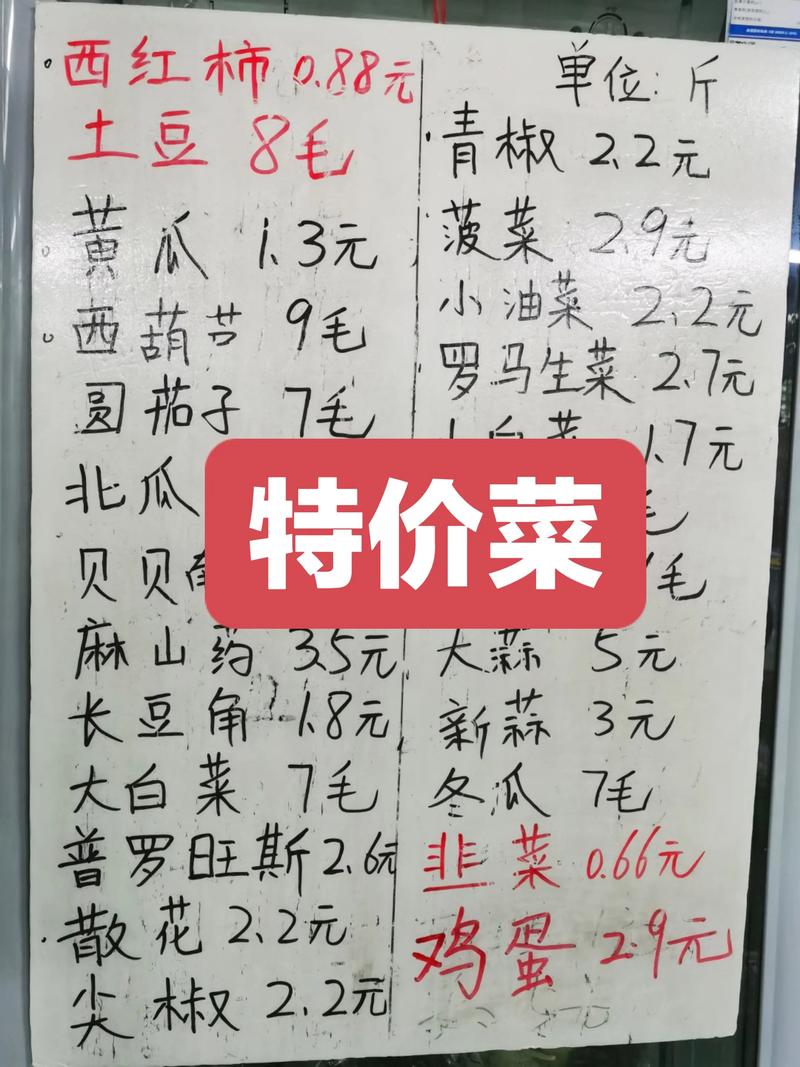 西红柿 0.88元
土豆 8毛
黄瓜 1.3元
西葫芦 9毛
圆茄子 7毛
北瓜
贝贝
麻山药 3.5元
长豆角 1.8元
大白菜 7毛
普罗旺斯 2.6元
散花 2.2元
尖椒 2.2元
单位:斤
青椒 2.2元
菠菜 2.9元
小油菜 2.2元
罗马生菜 2.7元
1.7元
毛
毛
大蒜 5元
新蒜 3元
冬瓜 7毛
韭菜 0.66元
鸡蛋 2.9元
特价菜